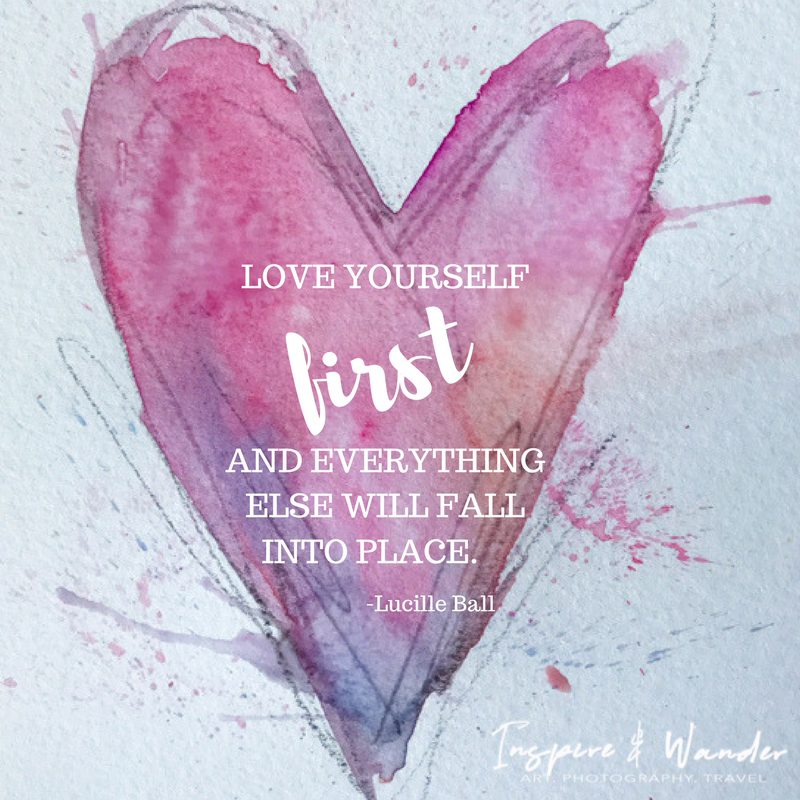 LOVE YOURSELF
first
AND EVERYTHING
ELSE WILL FALL
INTO PLACE.
-Lucille Ball
Inspire & Wander
ART. PHOTOGRAPHY. TRAVEL